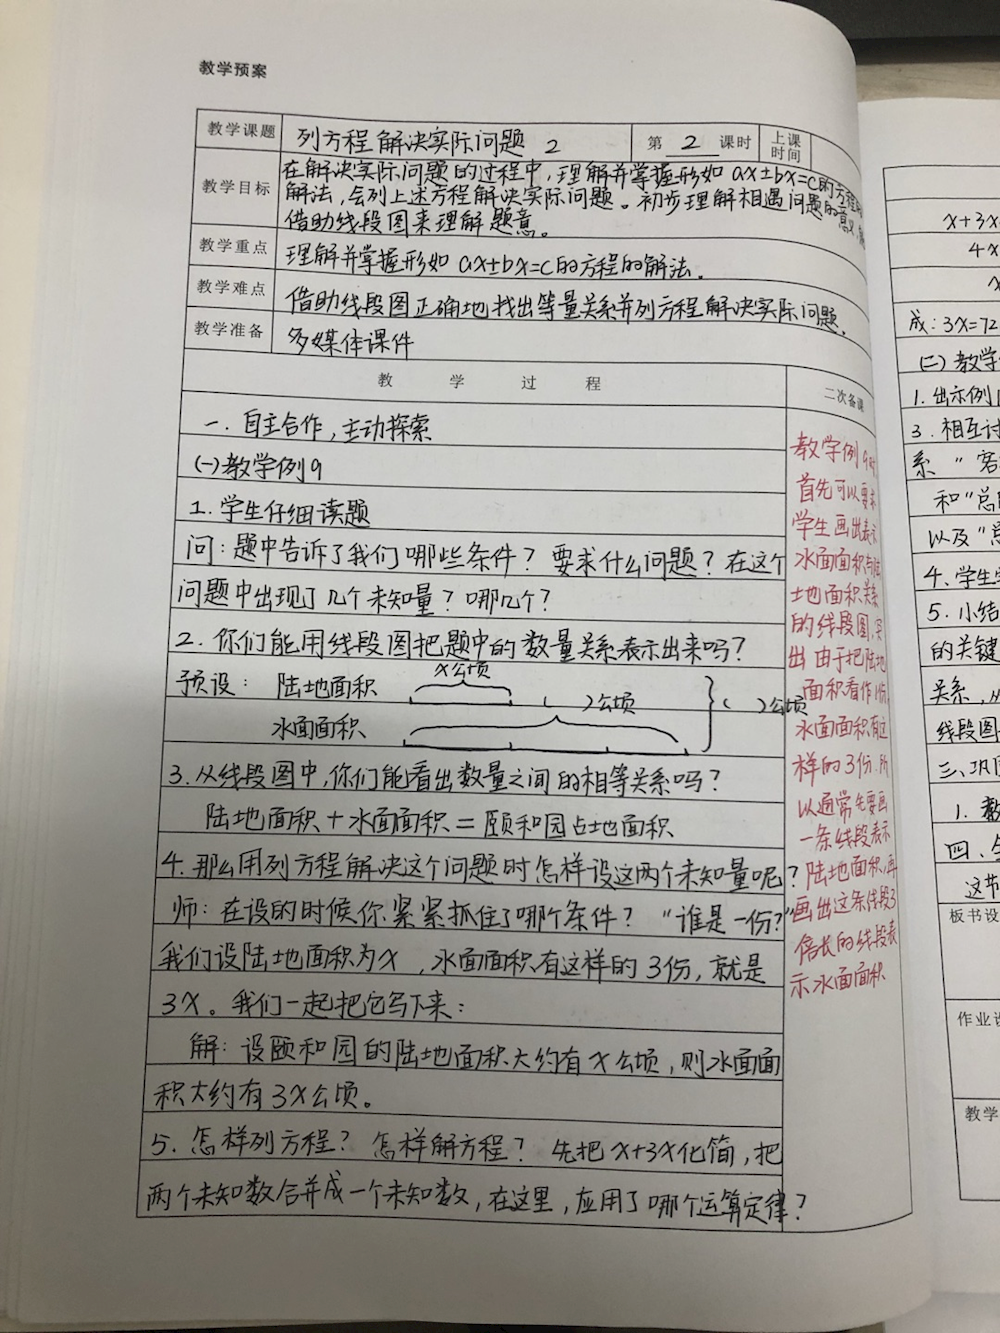 教学预案
教学课题 列方程解决实际问题 2 第 2 课时 上课时间
教学目标 在解决实际问题的过程中，理解并掌握形如 ax±bx=c的方程的
解法，会列上述方程解决实际问题。初步理解相遇问题的意义，
借助线段图来理解题意。
教学重点 理解并掌握形如 ax±bx=c的方程的解法。
教学难点 借助线段图正确地找出等量关系并列方程解决实际问题。
教学准备 多媒体课件
教 学 过 程 二次备课
一．自主合作，主动探索
(一)教学例9
1. 学生仔细读题
问：题中告诉了我们哪些条件？要求什么问题？在这个
问题中出现了几个未知量？哪几个？
2. 你们能用线段图把题中的数量关系表示出来吗？
x公顷
预设： 陆地面积 ( )公顷 ( )公顷
水面面积
3. 从线段图中，你们能看出数量之间的相等关系吗？
陆地面积＋水面面积＝颐和园占地面积
4. 那么用列方程解决这个问题时怎样设这两个未知量呢？
师：在设的时候你紧紧抓住了哪个条件？“谁是一份？”
我们设陆地面积为x，水面面积有这样的3份，就是
3x。我们一起把它写下来：
解：设颐和园的陆地面积大约有x公顷，则水面面
积大约有3x公顷。
5. 怎样列方程？怎样解方程？先把x+3x化简，把
两个未知数合并成一个未知数，在这里，应用了哪个运算定律？
教学例9时
首先可以要求
学生画出表示
水面面积与陆
地面积关系
的线段图，突
出由于把陆地
面积看作1份，
水面面积有这
样的3份，所
以通常先要画
一条线段表示
陆地面积，再
画出这条线段3
倍长的线段表
示水面面积
x+3x
4x
x
成：3x=72
(二)教学
1. 出示例
3. 相互讨
系 "客
和"总
以及"
4. 学生
5. 小结
的关键
关系，
线段图
三、巩
1. 教
四、
这节
板书设
作业设
教学